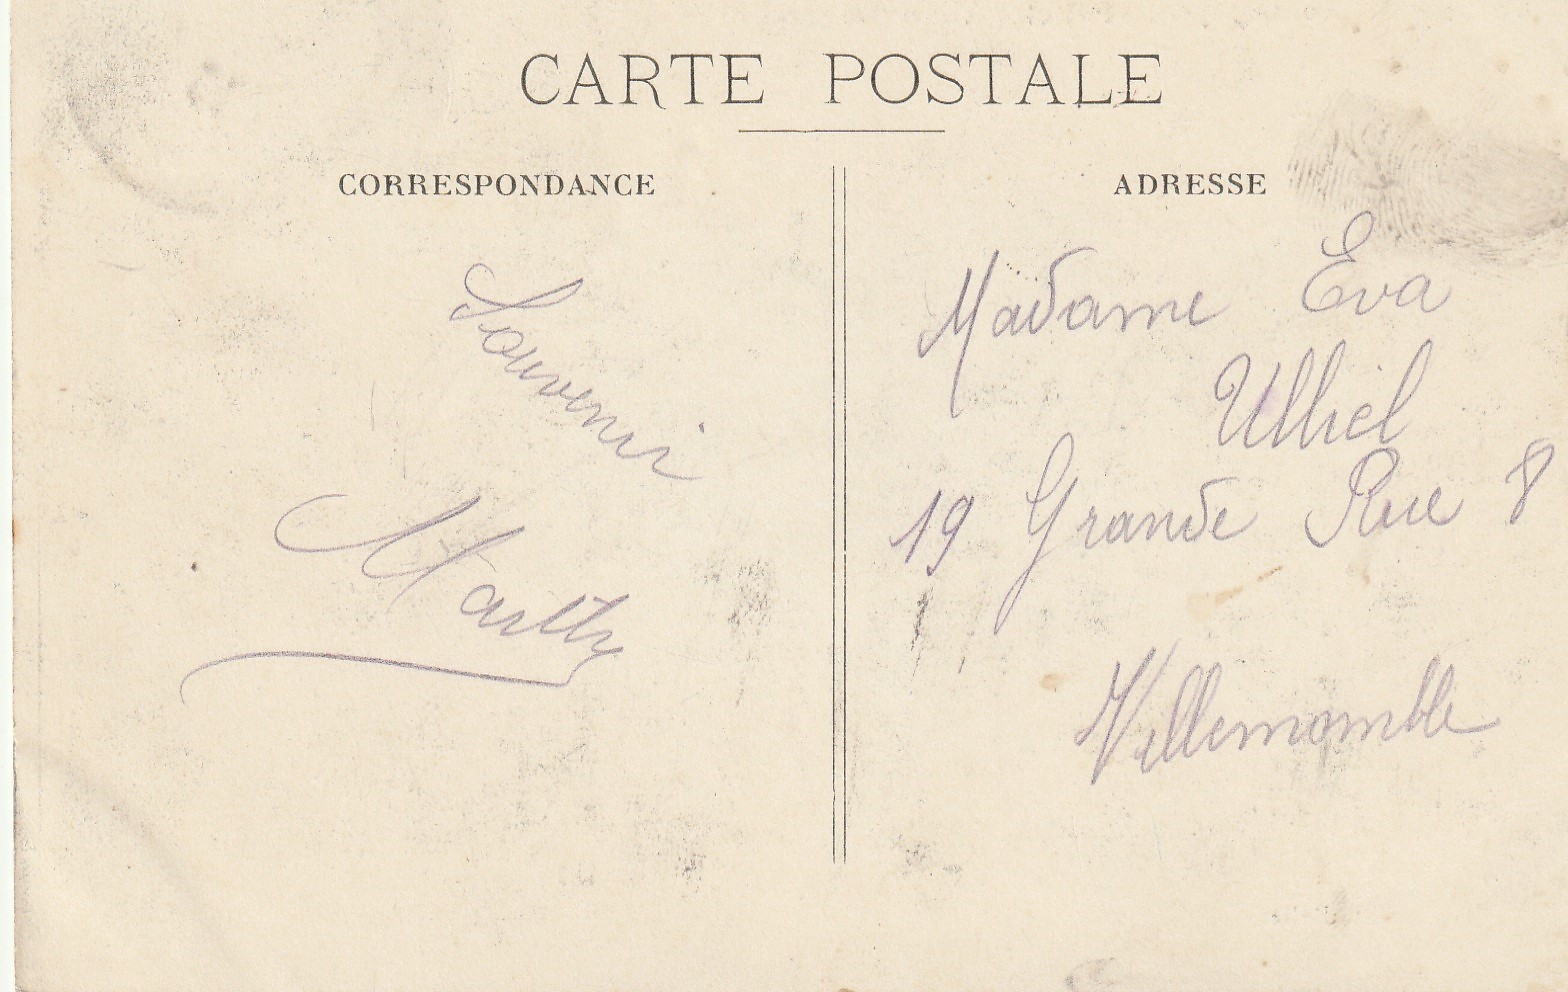 CARTE POSTALE
CORRESPONDANCE
Souvenir
ADRESSE
Madame Eva
Ulliel
19 Grande Rue 8
Villemomble